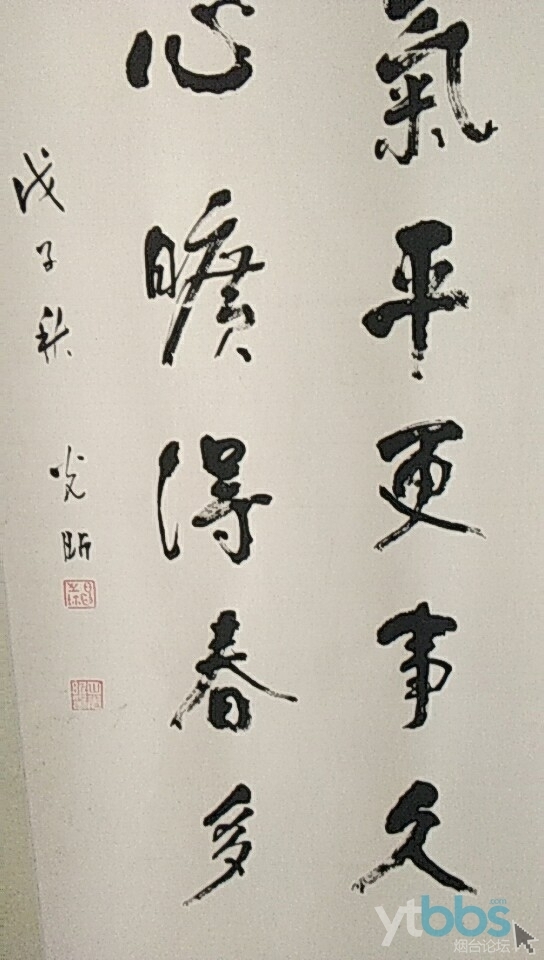 氣平更事久
心曠得春多
戊子秋
光昕
ytbbs.com
烟台论坛